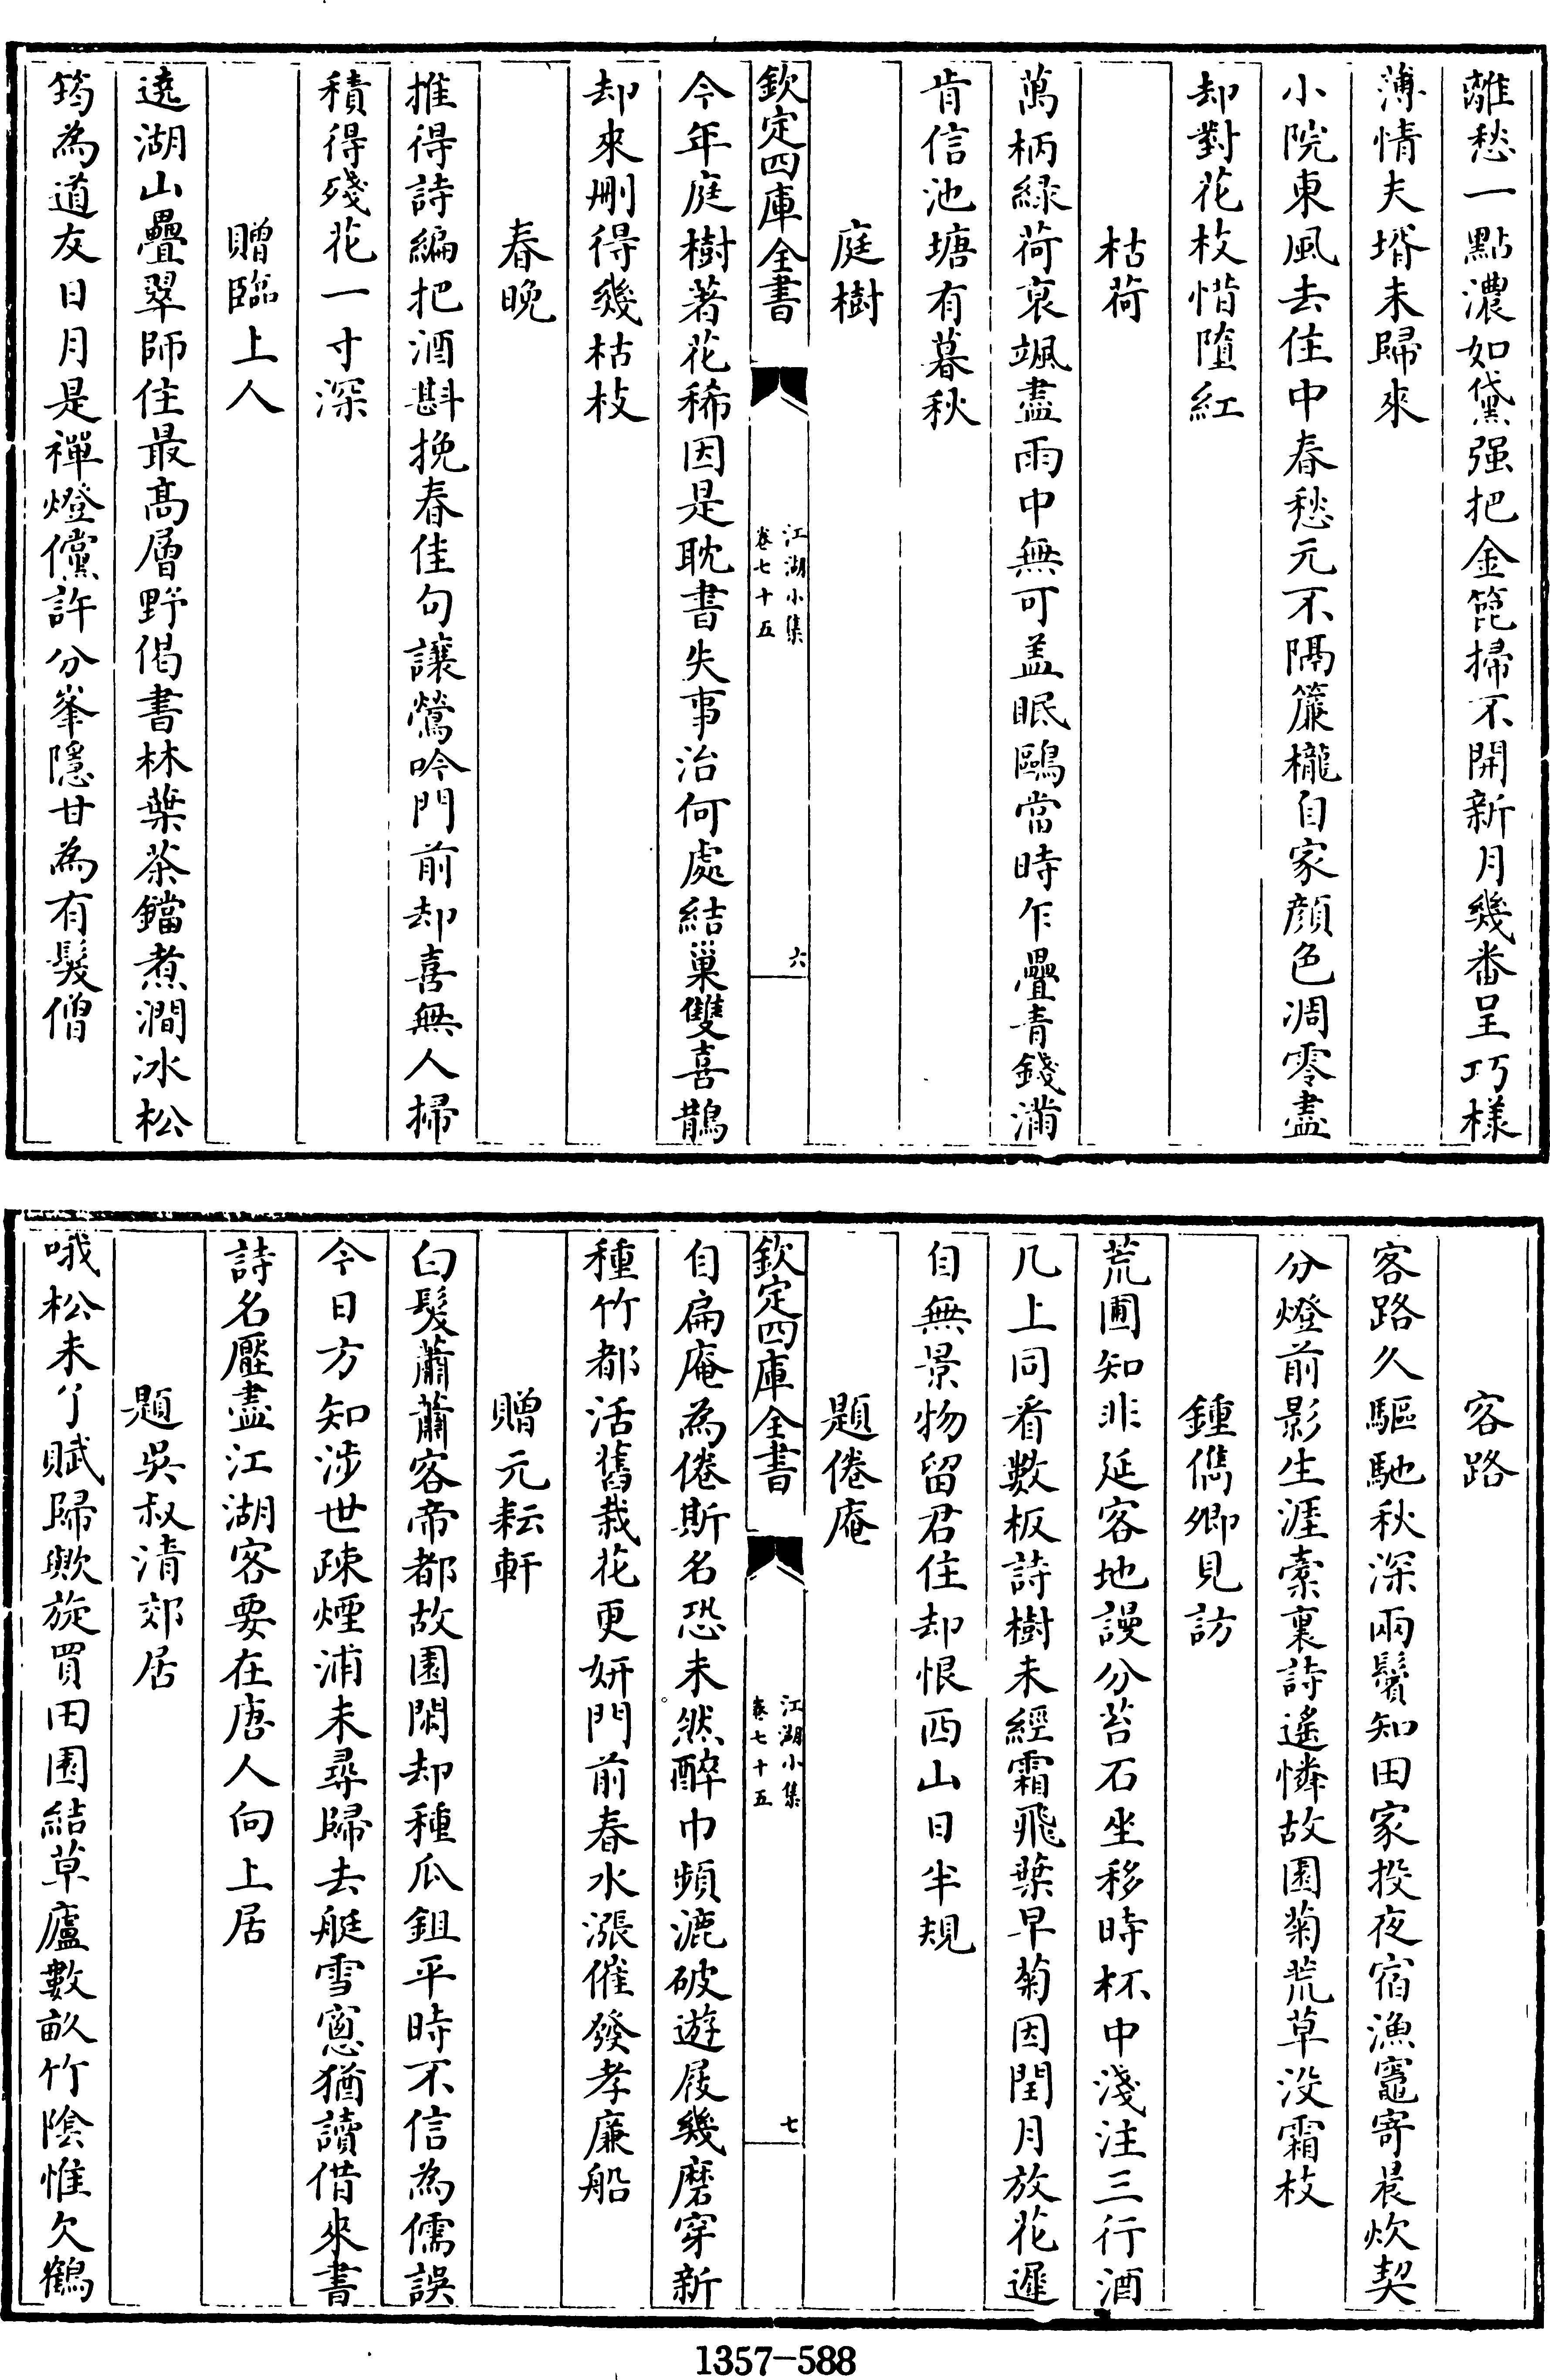 離愁一點濃如黛强把金箆掃不開新月幾番呈巧様
薄情夫壻未歸來
小院東風去住中春愁元不隔簾櫳自家顔色凋零盡
却對花枝惜墮紅
枯荷
萬柄緑荷衰颯盡雨中無可盖眠鷗當時乍疊青錢滿
肯信池塘有暮秋
庭樹
欽定四庫全書
江湖小集
卷七十五
六
今年庭樹著花稀因是耽書失事治何處結巢雙喜鵲
却來刪得幾枯枝
春晚
推得詩編把酒斟挽春佳句讓鶯吟門前却喜無人掃
積得殘花一寸深
贈臨上人
遶湖山疊翠師住最髙層野偈書林葉茶鐺煮澗冰松
筠為道友日月是禪燈儻許分峯隱甘為有髮僧
客路
客路久驅馳秋深兩鬢知田家投夜宿漁竈寄晨炊契
分燈前影生涯橐裏詩遙憐故園菊荒草没霜枝
鍾儁卿見訪
荒圃知非延客地謾分苔石坐移時杯中淺注三行酒
几上同看數板詩樹未經霜飛葉早菊因閏月放花遲
自無景物留君住却恨西山日半規
題倦庵
欽定四庫全書
江湖小集
卷七十五
七
自扁庵為倦斯名恐未然醉巾頻漉破遊屐幾磨穿新
種竹都活舊栽花更妍門前春水漲催發孝廉船
贈元耘軒
白髮蕭蕭客帝都故園閑却種瓜鉏平時不信為儒誤
今日方知涉世疎煙浦未尋歸去艇雪窻猶讀借來書
詩名壓盡江湖客要在唐人向上居
題吳叔清郊居
哦松未了賦歸歟旋買田園結草廬數畝竹陰惟欠鶴
1357-588